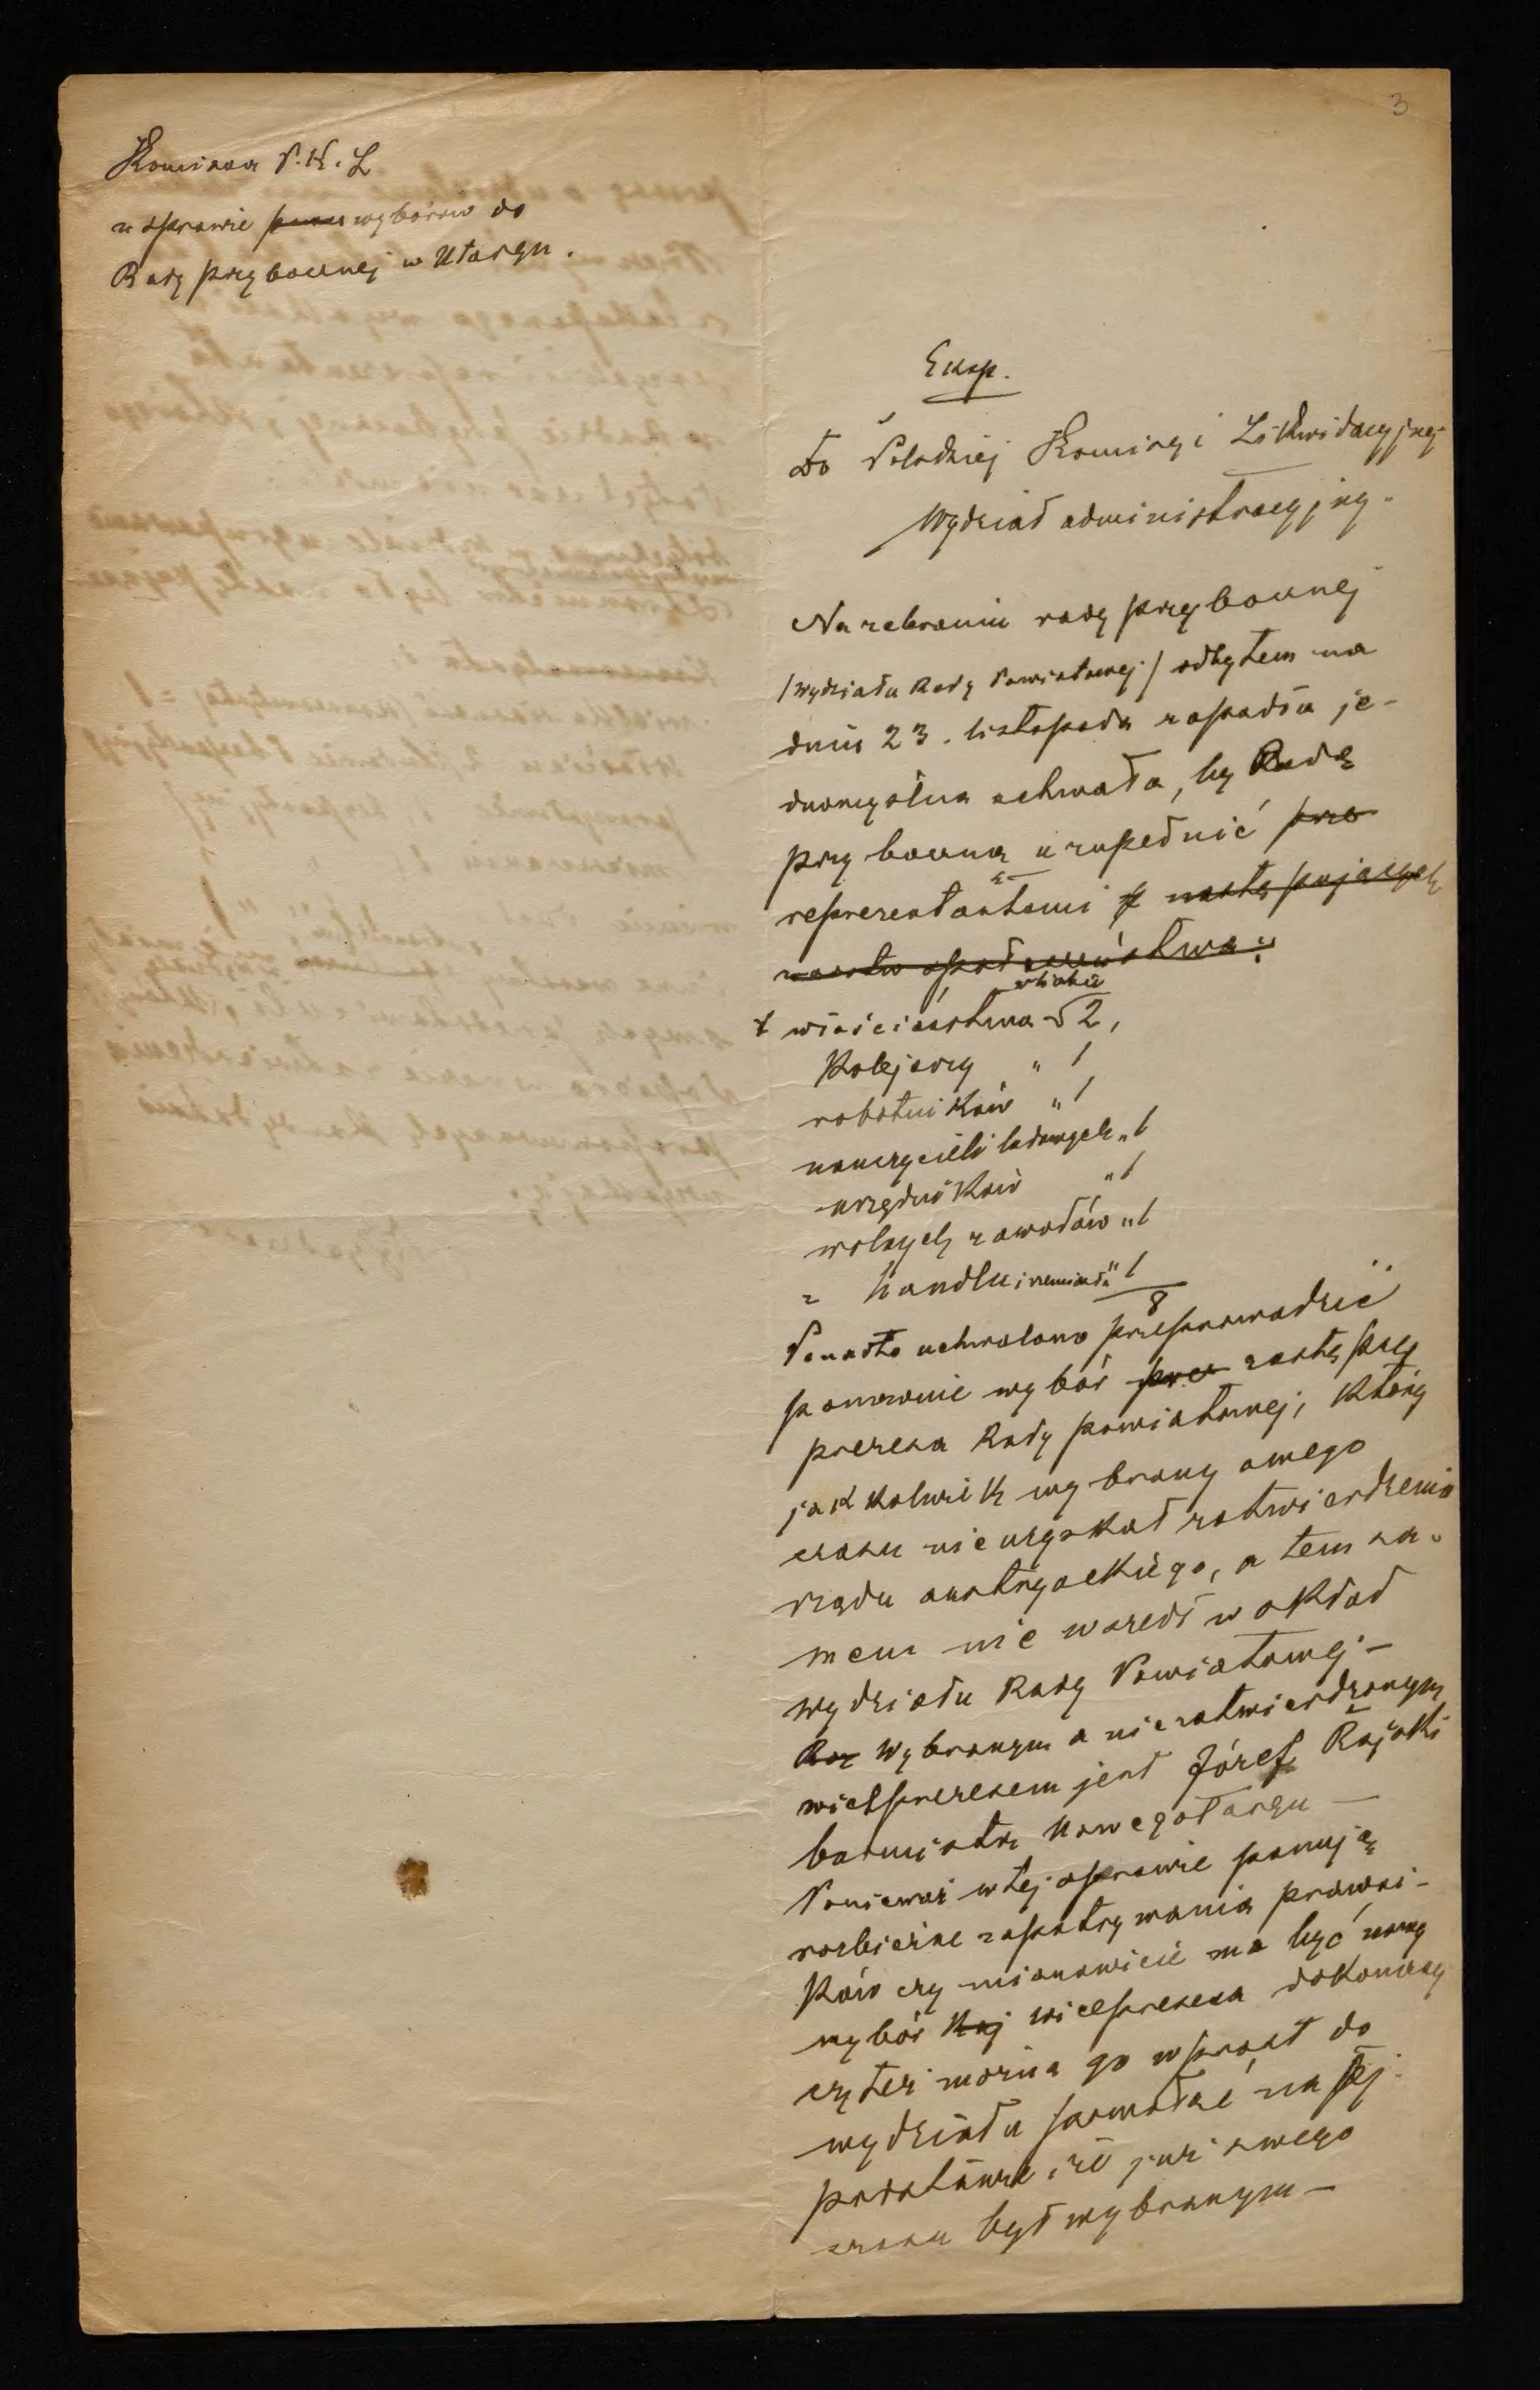 3
Komisaa P. K. L
w sprawie wyborów do
Rady przybocznej w Ntargu.
Eksp.
Do Polskiej Komisyi Likwidacyjnej
Wydział administracyjny.
Na zebraniu rady przybocznej
/Wydziału Rady Powiatowej/ odbytem na
dniu 23. listopada zapadła je-
dnomyślna uchwała, by Radę
przyboczną uzupełnić prze
reprezentantami z następujących
warstw społeczeństwa:
z włościaństwa w liczbie 2,
Kolejarzy " 1
robotników " 1
nauczycieli ludowych " 1
urzędników " 1
wolnych zawodów " 1
z handlu i rzemiosła " 1
8
Ponadto uchwalono przeprowadzić
ponownie wybór prez zastępcy
prezesa Rady powiatowej, który
jakkolwiek wybrany swego
czasu nie uzyskał zatwierdzenia
rządu austryackiego, a tem sa-
mem nie wszedł w skład
Wydziału Rady Powiatowej –
Wybranym a niezatwierdzonym
wiceprezesem jest Józef Rajski
burmistrz Nowegotargu –
Ponieważ w tej sprawie panują
rozbieżne zapatrywania prawni-
ków czy mianowicie ma być nowy
wybór wiceprezesa dokonany
czyteż można go wprost do
wydziału powołać na tej
podstawie, że już swego
czasu był wybranym –